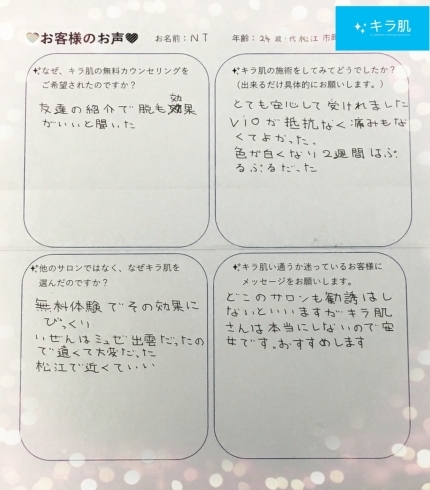 お客様のお声 お名前：NT 年齢：24歳・代 松江市
キラ肌
なぜ、キラ肌の無料カウンセリングを
ご希望されたのですか？
友達の紹介で脱毛効果
がいいと聞いた
キラ肌の施術をしてみてどうでしたか？
（出来るだけ具体的にお願いします。）
とても安心して受けれました
VIOが抵抗なく痛みもな
くてよかった。
色が白くなり2週間はぷ
るぷるだった
他のサロンではなく、なぜキラ肌を
選んだのですか？
無料体験でその効果に
びっくり
いぜんはミュゼ出雲だったの
で遠くて大変だった
松江で近くていい
キラ肌い通うか迷っているお客様に
メッセージをお願いします。
どこのサロンも勧誘はし
ないといいますがキラ肌
さんは本当にしないので安
女です。おすすめします